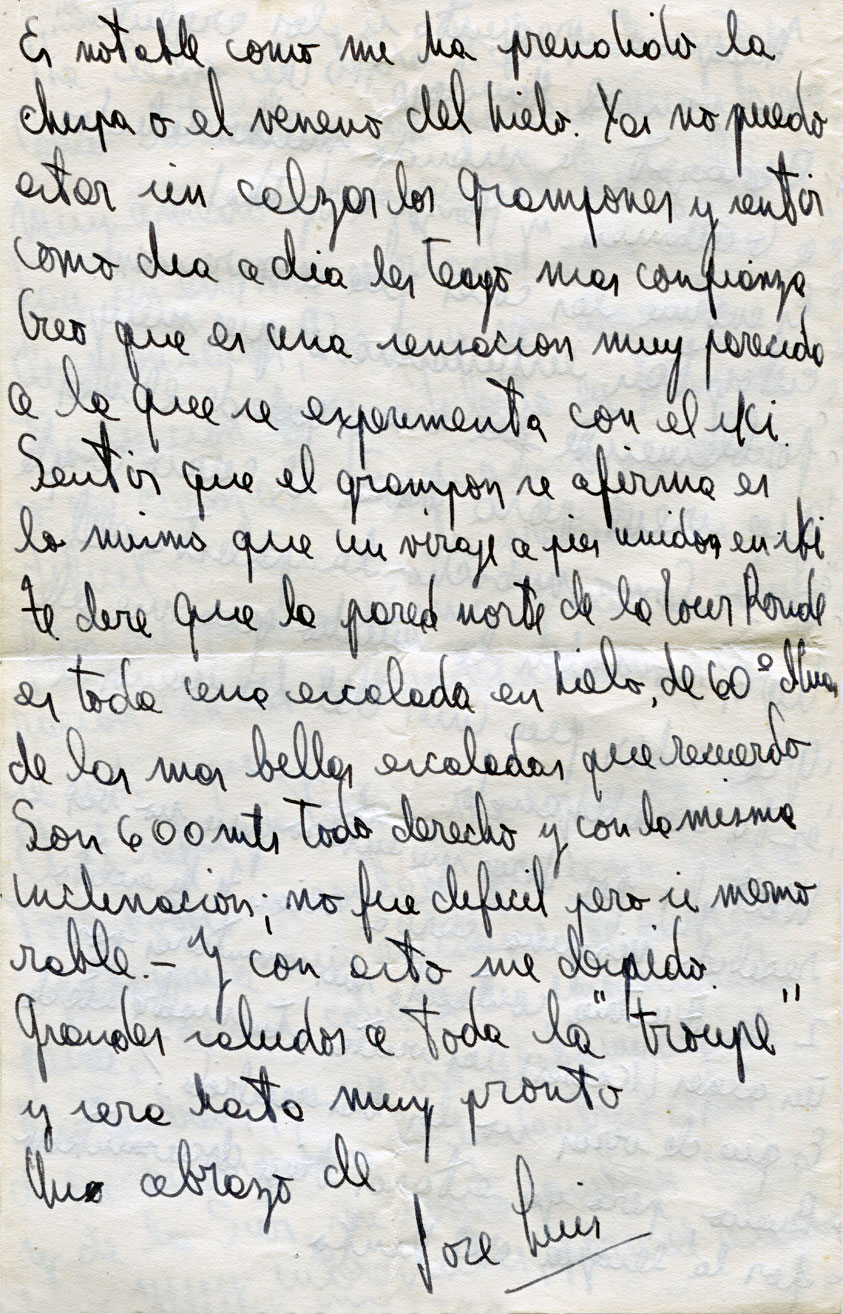 Es notable como me ha prendido la
chispa o el veneno del hielo. Ya no puedo
estar sin calzar los grampones y sentir
como dia a dia les tengo mas confianza
Creo que es una sensacion muy parecida
a la que se experimenta con el ski.
Sentir que el grampon se afirma es
lo mismo que un viraje a pies unidos en ski
te dire que la pared norte de la Tour Ronde
es toda una escalada en hielo, de 60º Una
de las mas bellas escaladas que recuerdo
Son 600 mts todo derecho y con la misma
inclinacion; no fue dificil pero si memo
rable.- Y con esto me despido.
Grandes saludos a toda la "troupe"
y sera hasta muy pronto
Un abrazo de
Jose Luis